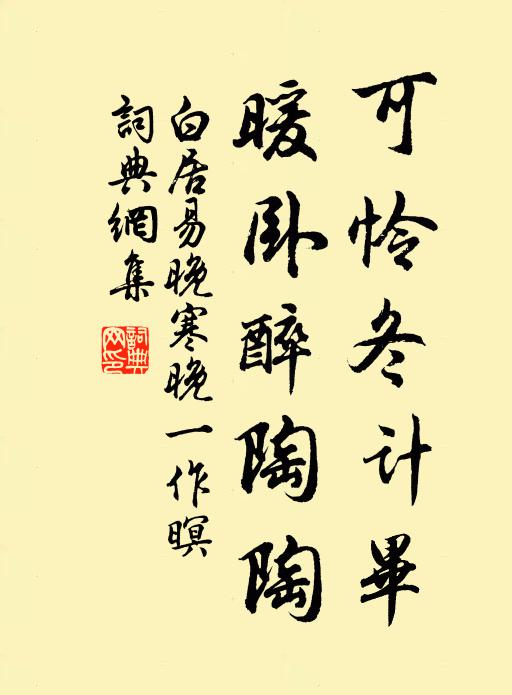 可怜冬计畢
暖卧醉陶陶
白居易晚寒晚一作暝
詞典網集
詞典網印